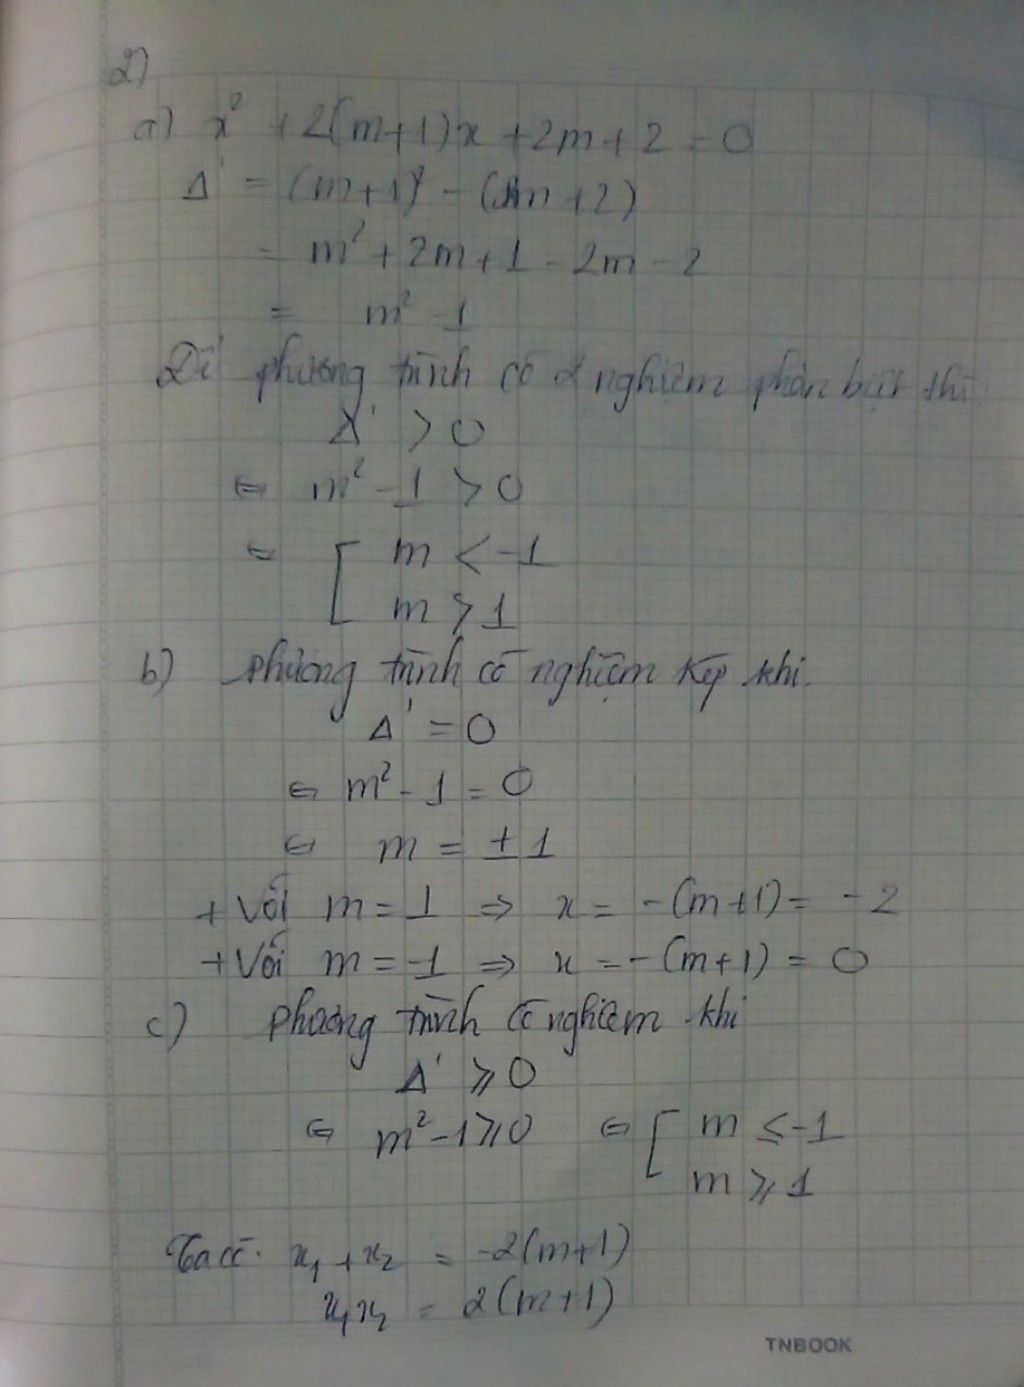 2)
a) x² + 2(m+1)x + 2m + 2 = 0
Δ' = (m+1)² - (2m+2)
= m² + 2m + 1 - 2m - 2
= m² - 1
Để phương trình có 2 nghiệm phân biệt thì
Δ' > 0
⇔ m² - 1 > 0
⇔ [ m < -1
m > 1
b) phương trình có nghiệm kép khi
Δ' = 0
⇔ m² - 1 = 0
⇔ m = ± 1
+ Với m = 1 ⇒ x = -(m+1) = -2
+ Với m = -1 ⇒ x = -(m+1) = 0
c) phương trình có nghiệm khi
Δ' ⩾ 0
⇔ m² - 1 ⩾ 0 ⇔ [ m ≤ -1
m ⩾ 1
Ta có. x₁ + x₂ = -2(m+1)
x₁x₂ = 2(m+1)
TNBOOK